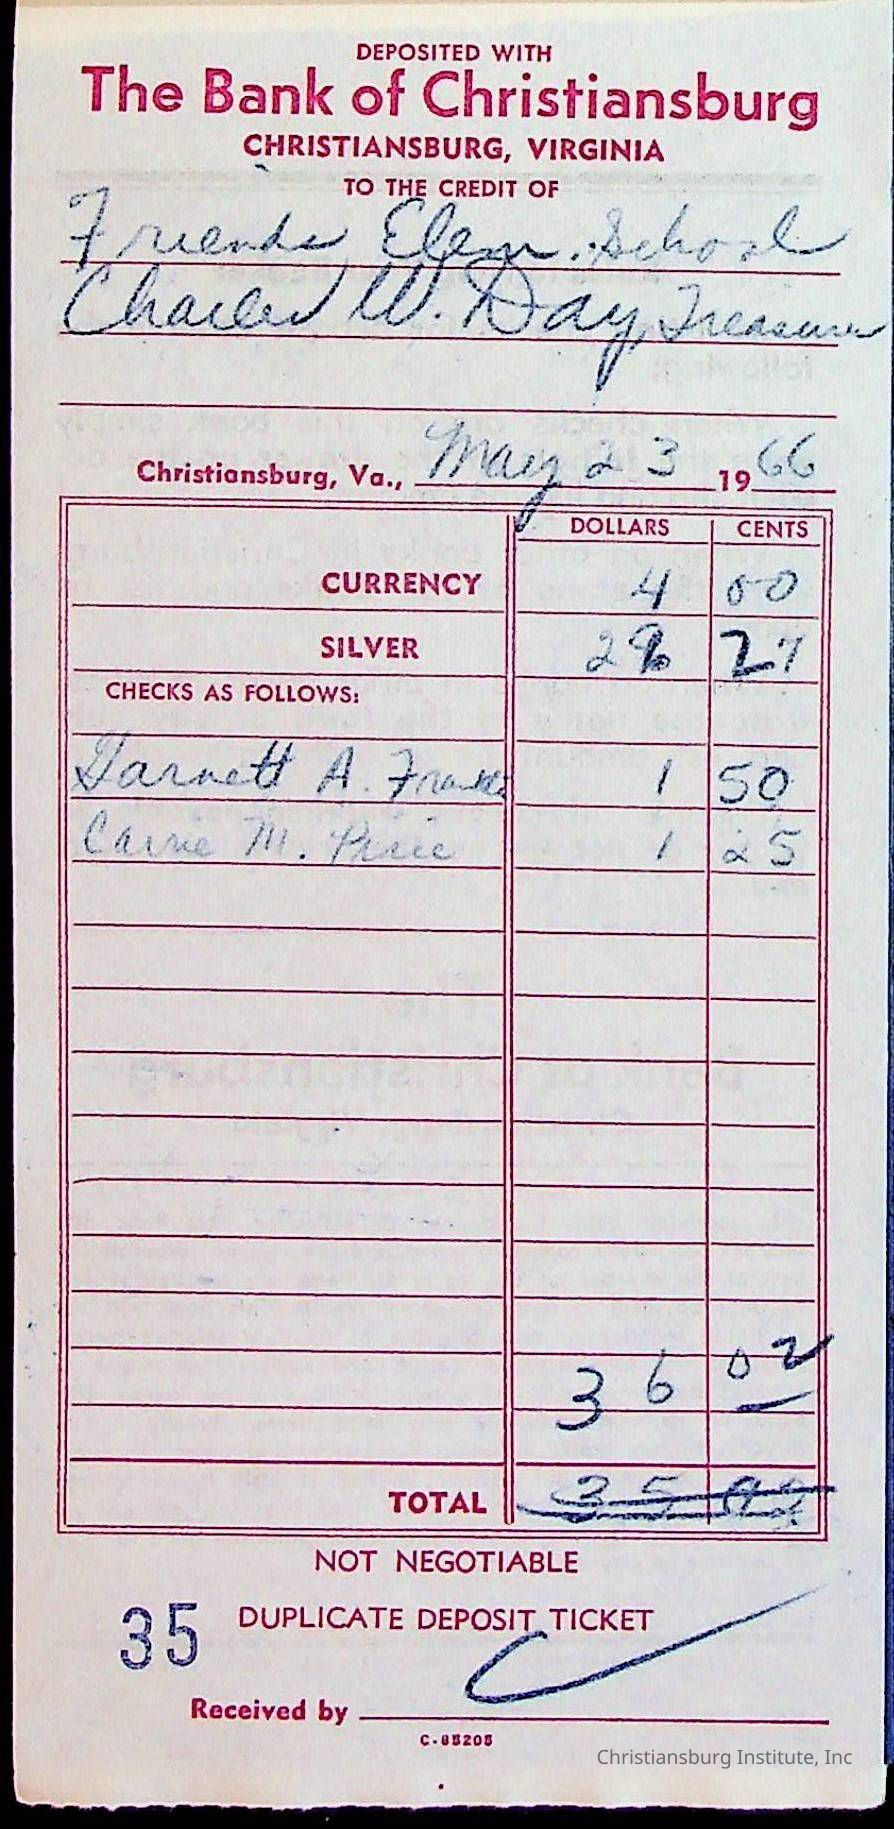 DEPOSITED WITH
The Bank of Christiansburg
CHRISTIANSBURG, VIRGINIA
TO THE CREDIT OF
Friends Elem. School
Charles W. Day, Treasurer
Christiansburg, Va., May 23 1966
DOLLARS CENTS
CURRENCY 4 00
SILVER 29 27
CHECKS AS FOLLOWS:
Garnett A. 1 50
Carrie M. Price 1 25
36 02
TOTAL 35
NOT NEGOTIABLE
35 DUPLICATE DEPOSIT TICKET
Received by
C-85205
Christiansburg Institute, Inc